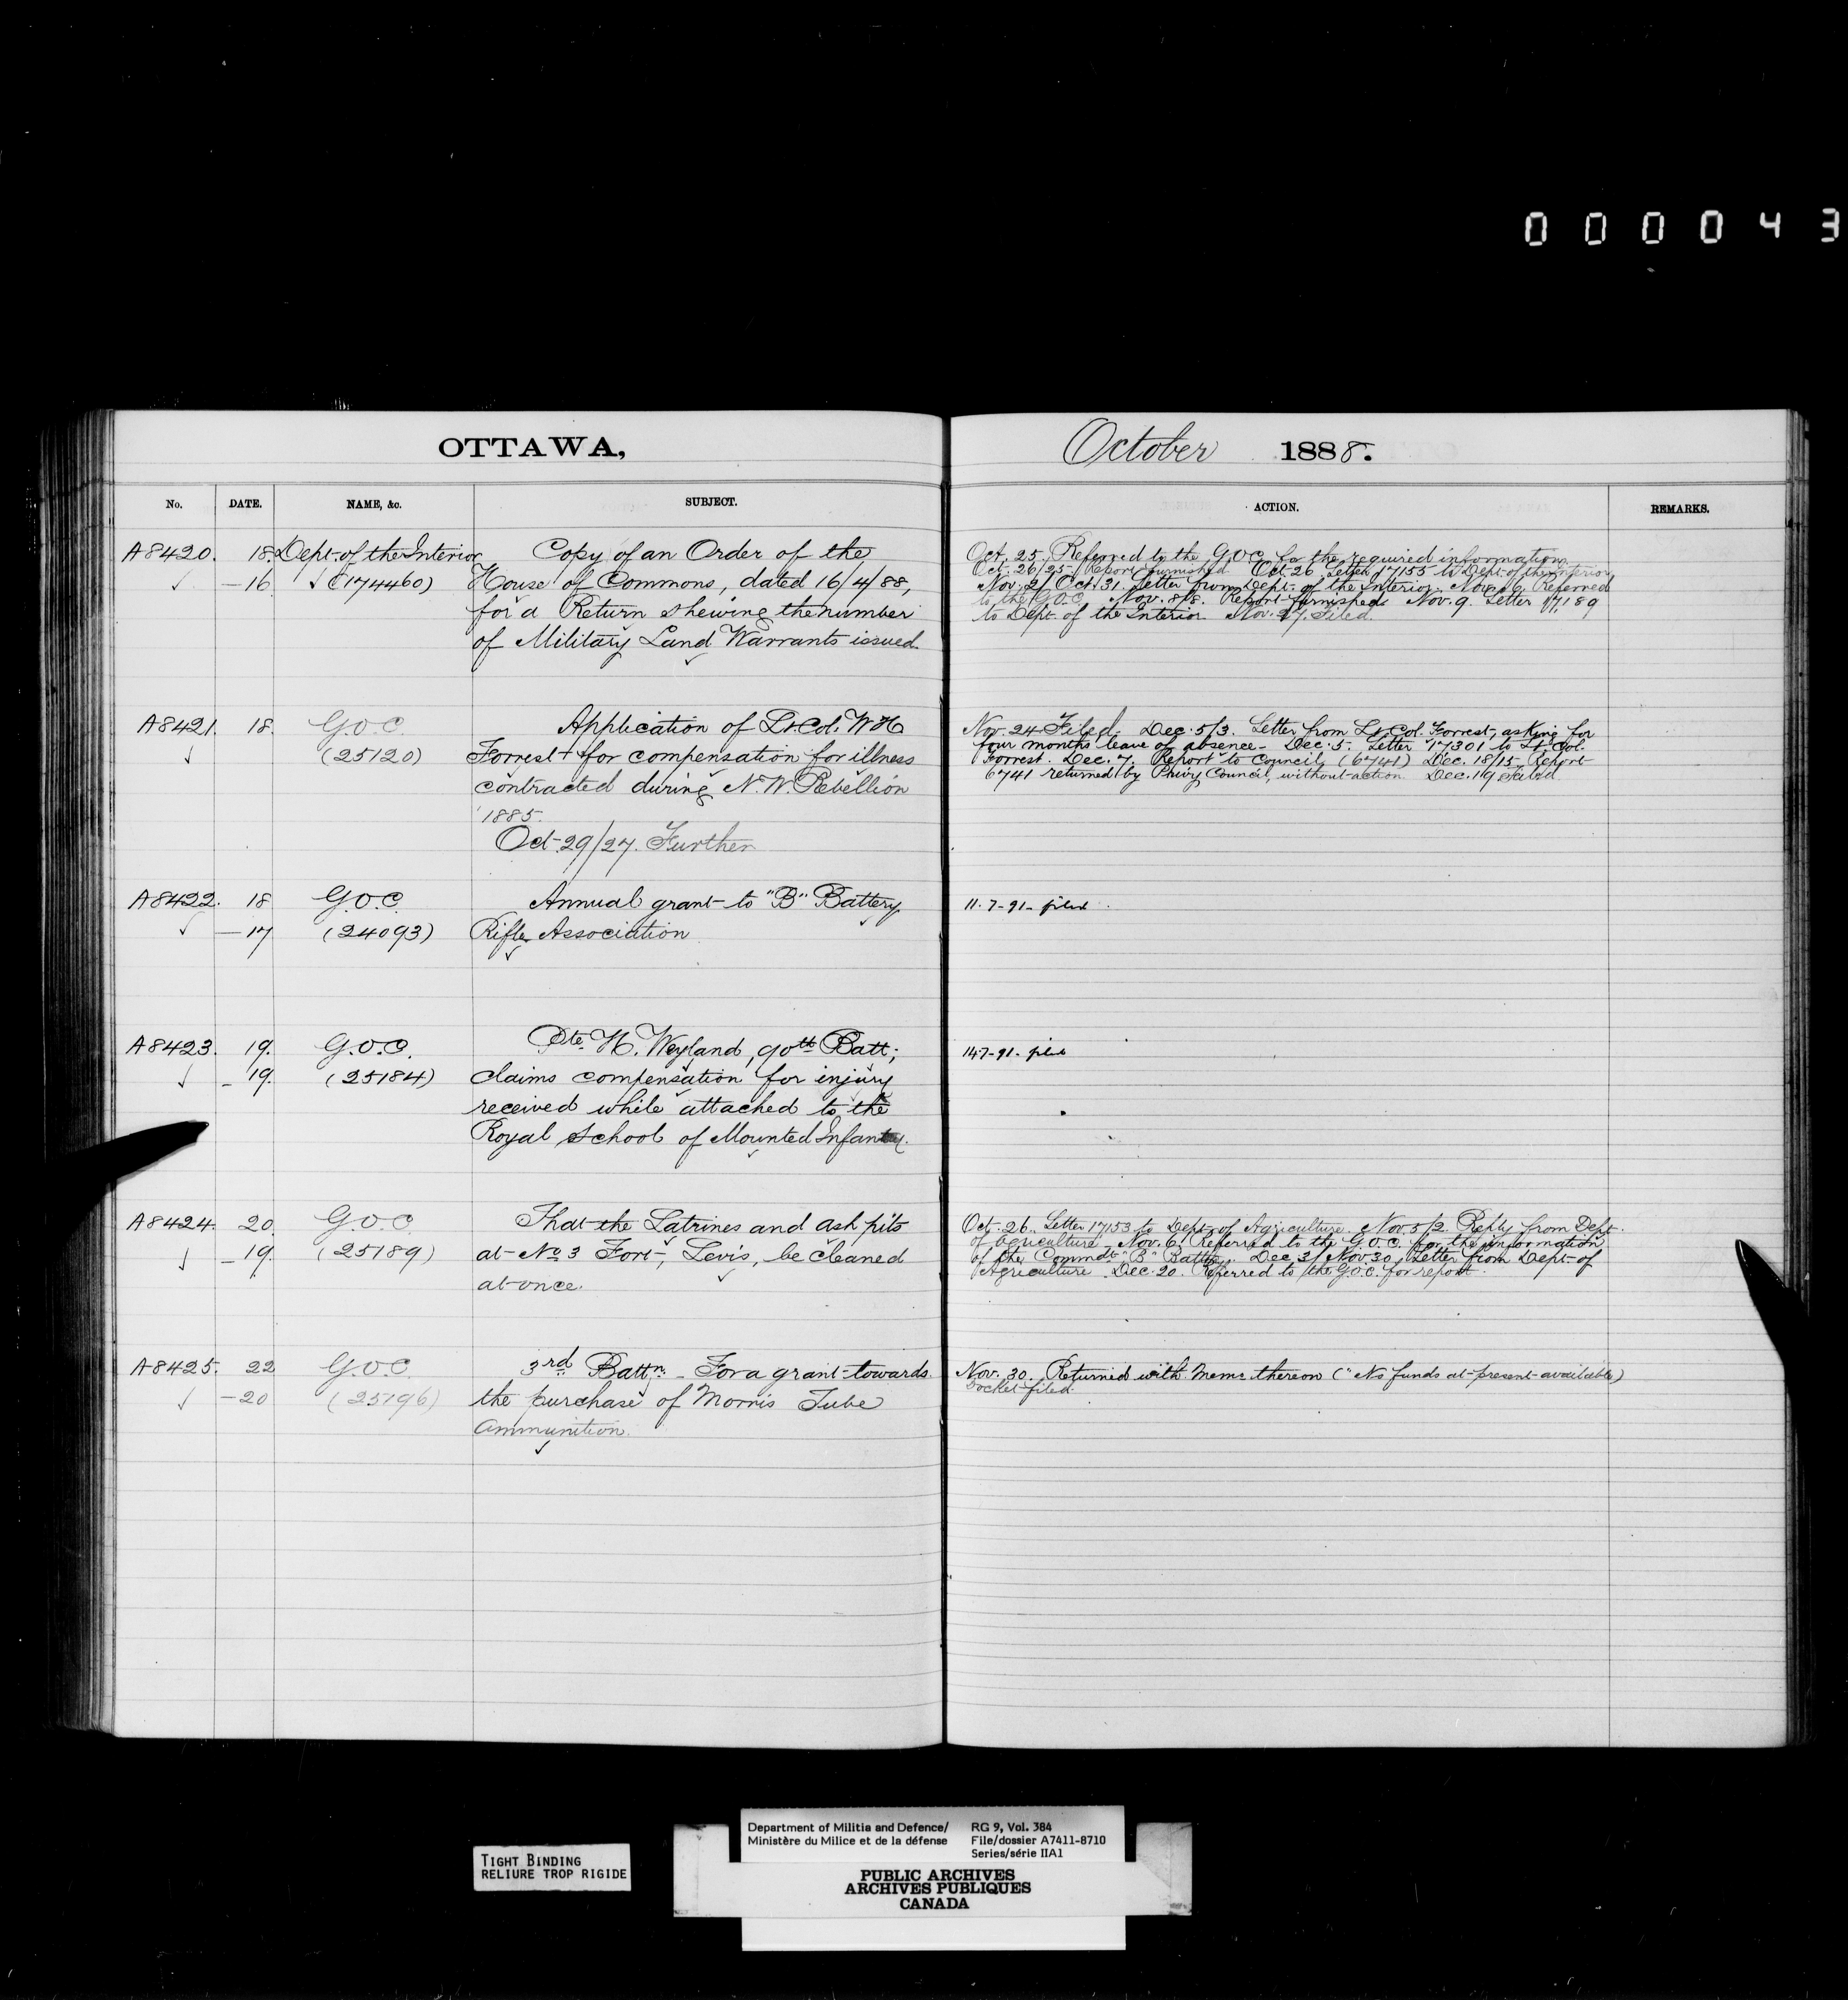 000043
OTTAWA,
October 1888.
No.
DATE.
NAME, &c.
SUBJECT.
ACTION.
REMARKS.
A8420. 18. Dept. of the Interior Copy of an Order of the
— 16 (174460) House of Commons, dated 16/4/88,
for a Return shewing the number
of Military Land Warrants issued.
Oct. 25. Referred to the G.O.C. for the required information.
Oct. 26/25. Report furnished. Oct. 26 Letter 17155 to Dept. of the Interior.
Nov. 2/Oct. 31. Letter from Dept. of the Interior. Nov. Referred
to the G.O.C. Nov. 8/8. Report furnished. Nov. 9. Letter 17,189
to Dept. of the Interior. Nov. 27. Filed.
A8421. 18. G.O.C. Application of Lt. Col. W H
(25120) Forrest for compensation for illness
contracted during N.W. Rebellion
1885.
Oct. 29/27. Further
Nov. 24 Filed. Dec. 5/3. Letter from Lt. Col. Forrest, asking for
four months leave of absence – Dec. 5. Letter 17,301 to Lt. Col.
Forrest. Dec. 7. Report to Council (6741) Dec. 18/15. Report
6741 returned by Privy Council, without action. Dec. 19 Filed.
A8422. 18 G.O.C. Annual grant to "B" Battery
— 17 (24093) Rifle Association
11.7-91- filed.
A8423. 19. G.O.C. Pte. H. Weyland, 90th Batt;
— 19. (25184) claims compensation for injury
received while attached to the
Royal School of Mounted Infantry.
14.7-91- filed
A8424. 20. G.O.C. That the Latrines and ash pits
— 19. (25189) at No 3 Fort, Levis, be cleaned
at once.
Oct. 26. Letter 17153 to Dept. of Agriculture. Nov. 5/2. Reply from Dept.
of Agriculture. Nov. 6. Referred to the G.O.C. for the information
of the Commdt. "B" Battery. Dec. 3/Nov. 30. Letter from Dept. of
Agriculture. Dec. 20. Referred to the G.O.C. for report.
A8425. 22 G.O.C. 3rd Battn. – For a grant towards
— 20 (25196) the purchase of Morris Tube
Ammunition.
Nov. 30. Returned with Memo. thereon ("No funds at present available)
Docket filed.
TIGHT BINDING
RELIURE TROP RIGIDE
Department of Militia and Defence/
Ministère du Milice et de la défense
RG 9, Vol. 384
File/dossier A7411-8710
Series/série IIA1
PUBLIC ARCHIVES
ARCHIVES PUBLIQUES
CANADA